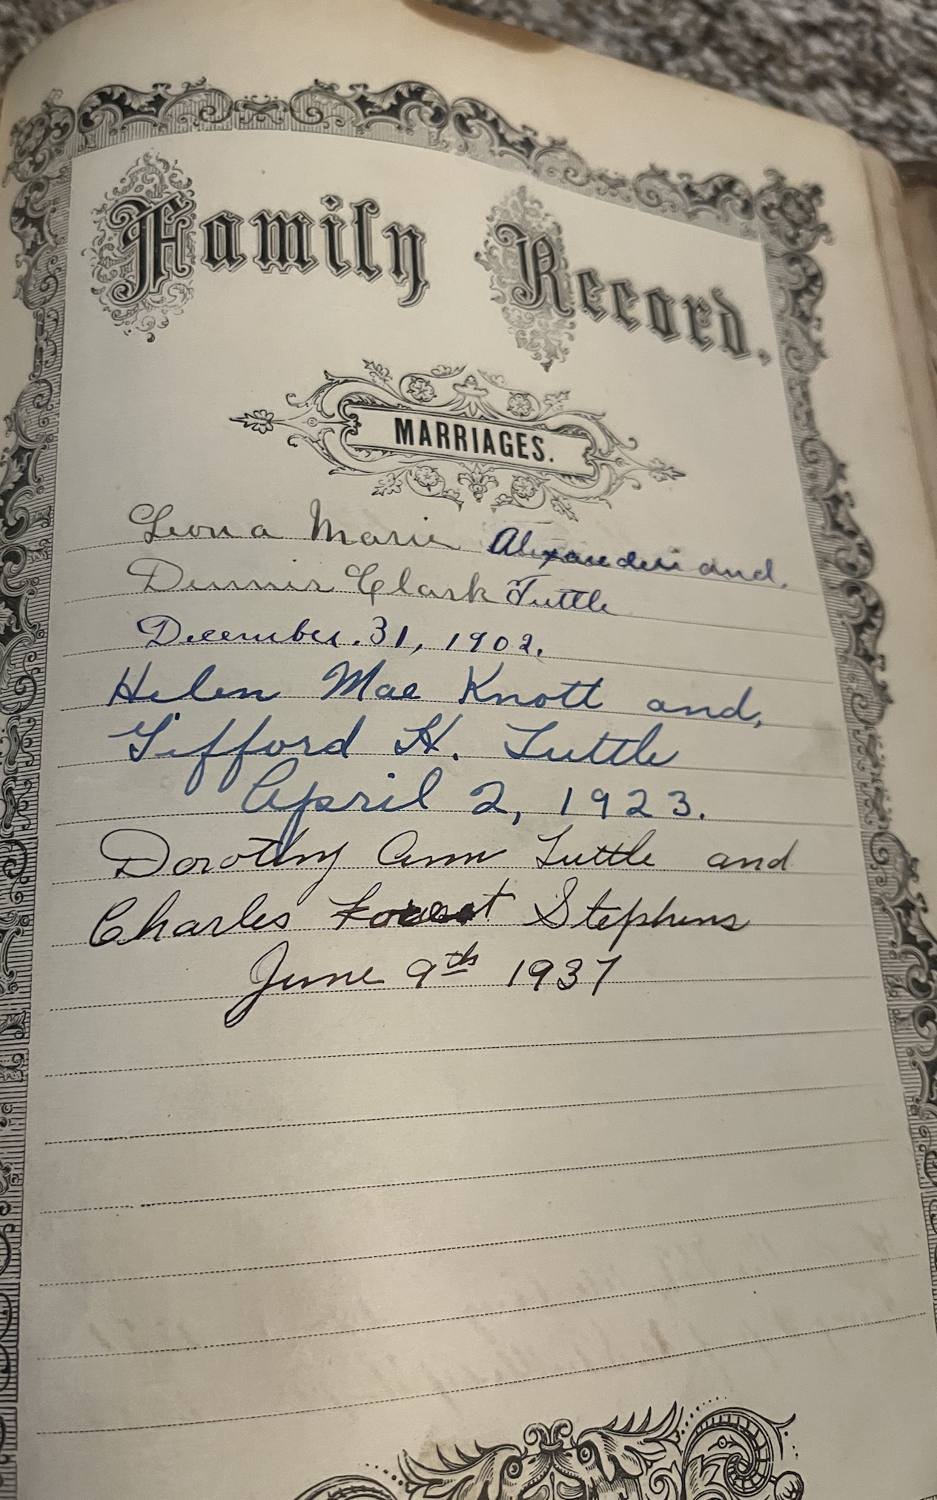 Family Record.
MARRIAGES.
Leona Marie and.
Dennis Clark Tuttle
December. 31, 1902.
Helen Mae Knott and,
Gifford H. Tuttle
April 2, 1923.
Dorothy Ann Tuttle and
Charles Forest Stephens
June 9th 1937